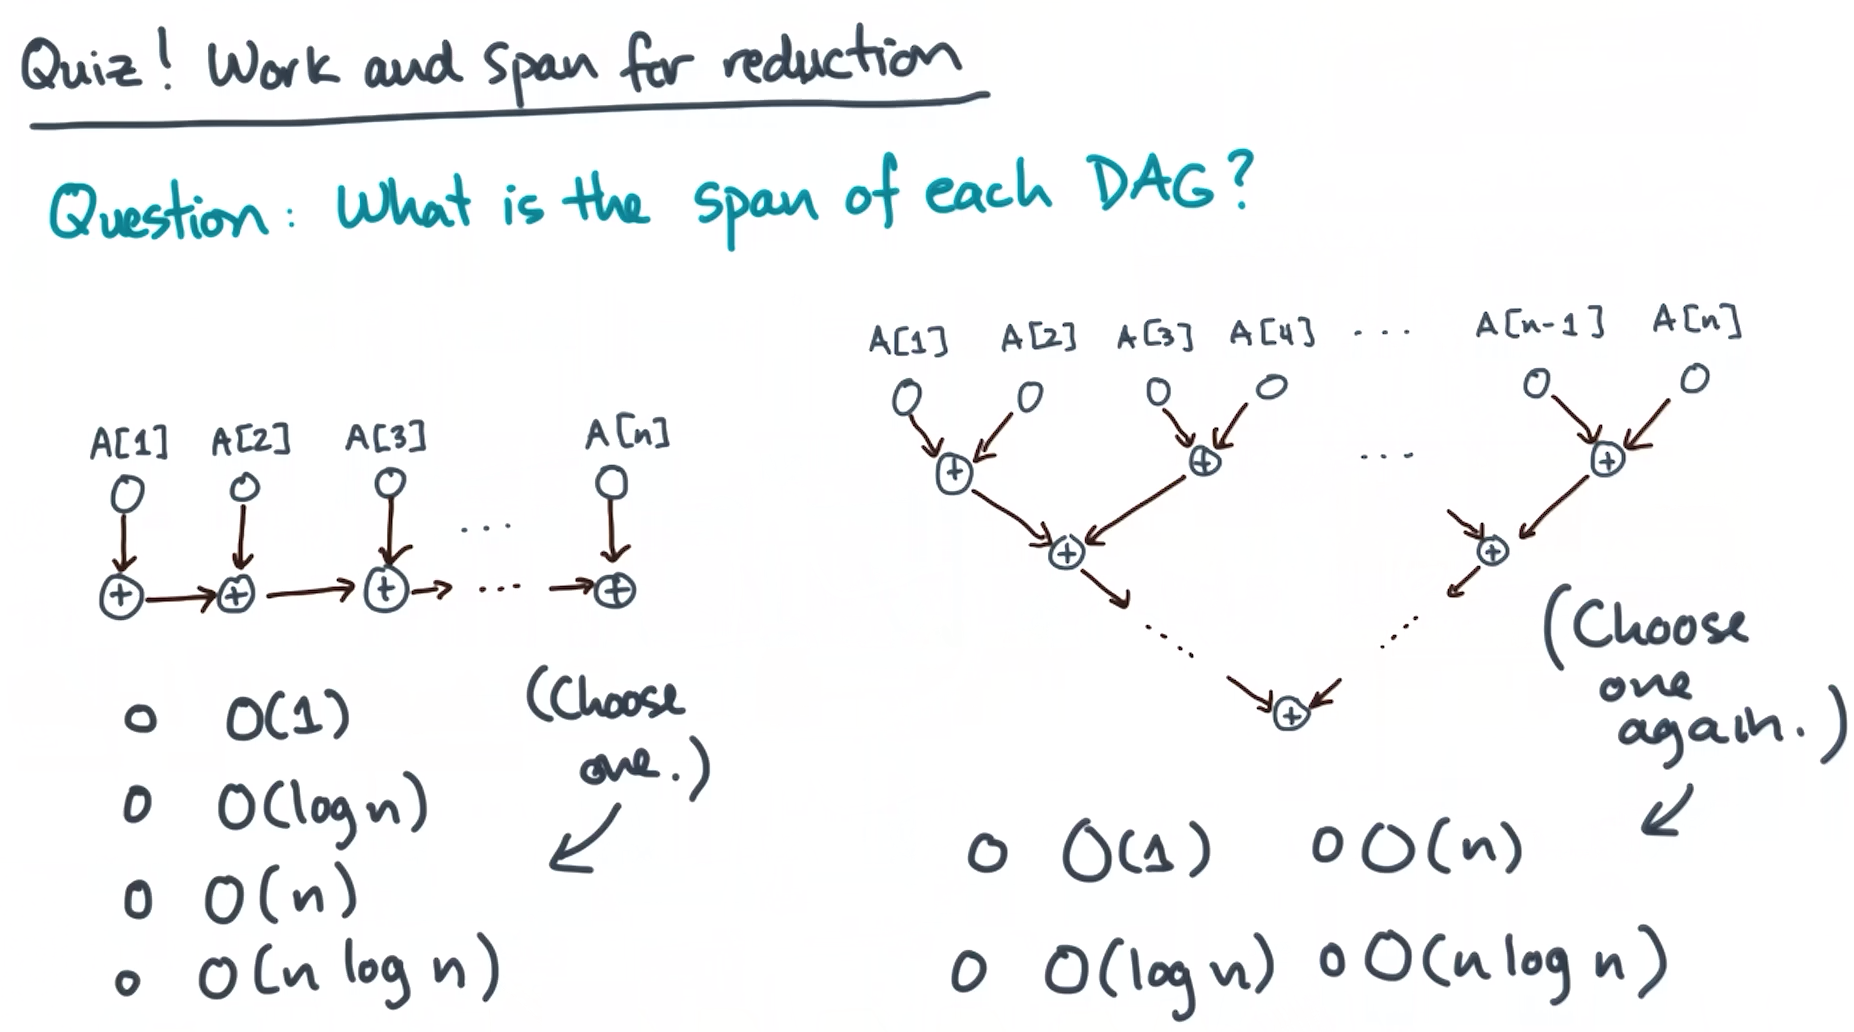 Quiz! Work and span for reduction
Question: What is the span of each DAG?
A[1] A[2] A[3] A[n]
+ + + ... +
(Choose
one.)
O(1)
O(log n)
O(n)
O(n log n)
A[1] A[2] A[3] A[4] ... A[n-1] A[n]
+ + ... +
+ +
+
(Choose
one
again.)
O(1) O(n)
O(log n) O(n log n)